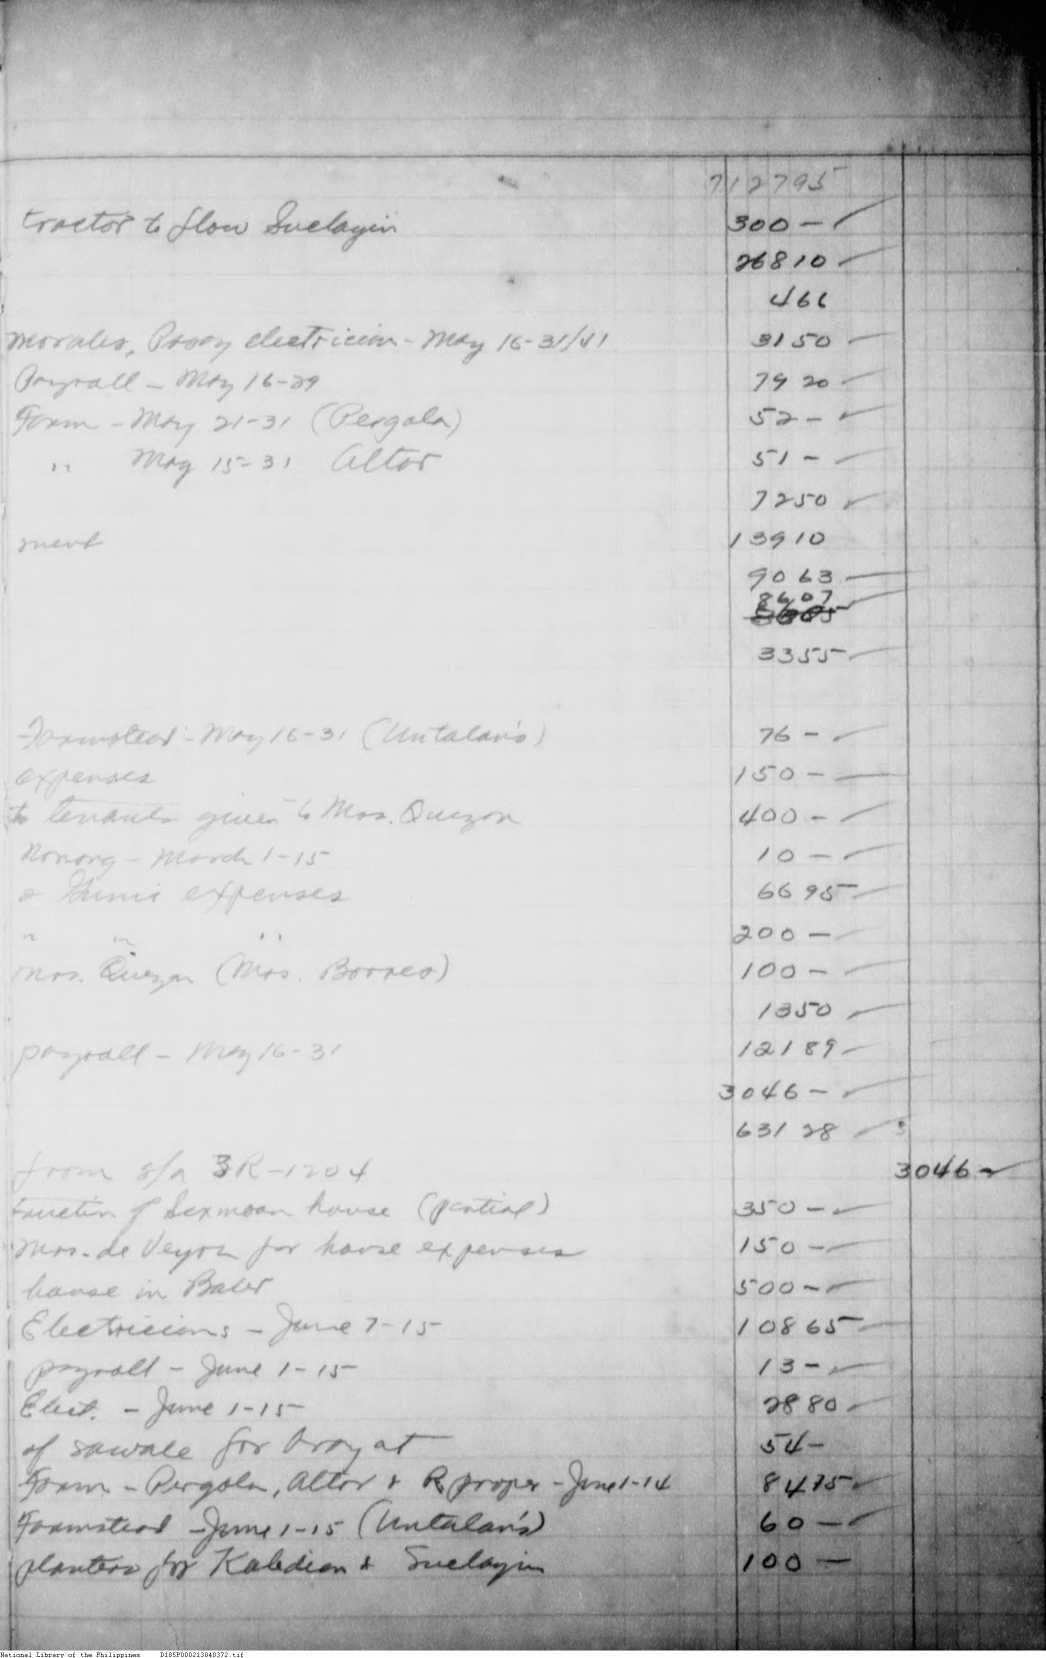 712795
tractor to plow Suclayin 300 –
26810
466
Morales, Pasay electrician - May 16-31/41 3150
Payroll - May 16-29 7920
Farm - May 21-31 (Pergola) 52 -
" May 15-31 Altar 51 -
7250
ment 13910
9063
8607
3355
Farmstead - May 16-31 (Untalan's) 76 -
expenses 150 -
to tenants given to Mrs. Quezon 400 -
Nonong - March 1-15 10 -
expenses 6695
" " " 200 -
Mrs. Quezon (Mrs. Borreo) 100 -
1350
payroll - May 16-31 12189
3046 -
63128
from s/a BR-1204 3046 -
of Sexmoan house (partial) 350 -
Mrs. de Veyra for house expenses 150 -
house in Baler 500 -
Electricians - June 7-15 10865
payroll - June 1-15 13 -
Elect. - June 1-15 2880
of sawale for Arayat 54 -
Farm - Pergola, Altar & R. proper - June 1-14 8475
Farmstead - June 1-15 (Untalan's) 60 -
planters for Kaledian & Suclayin 100 -
National Library of the Philippines D185P000213040372.tif